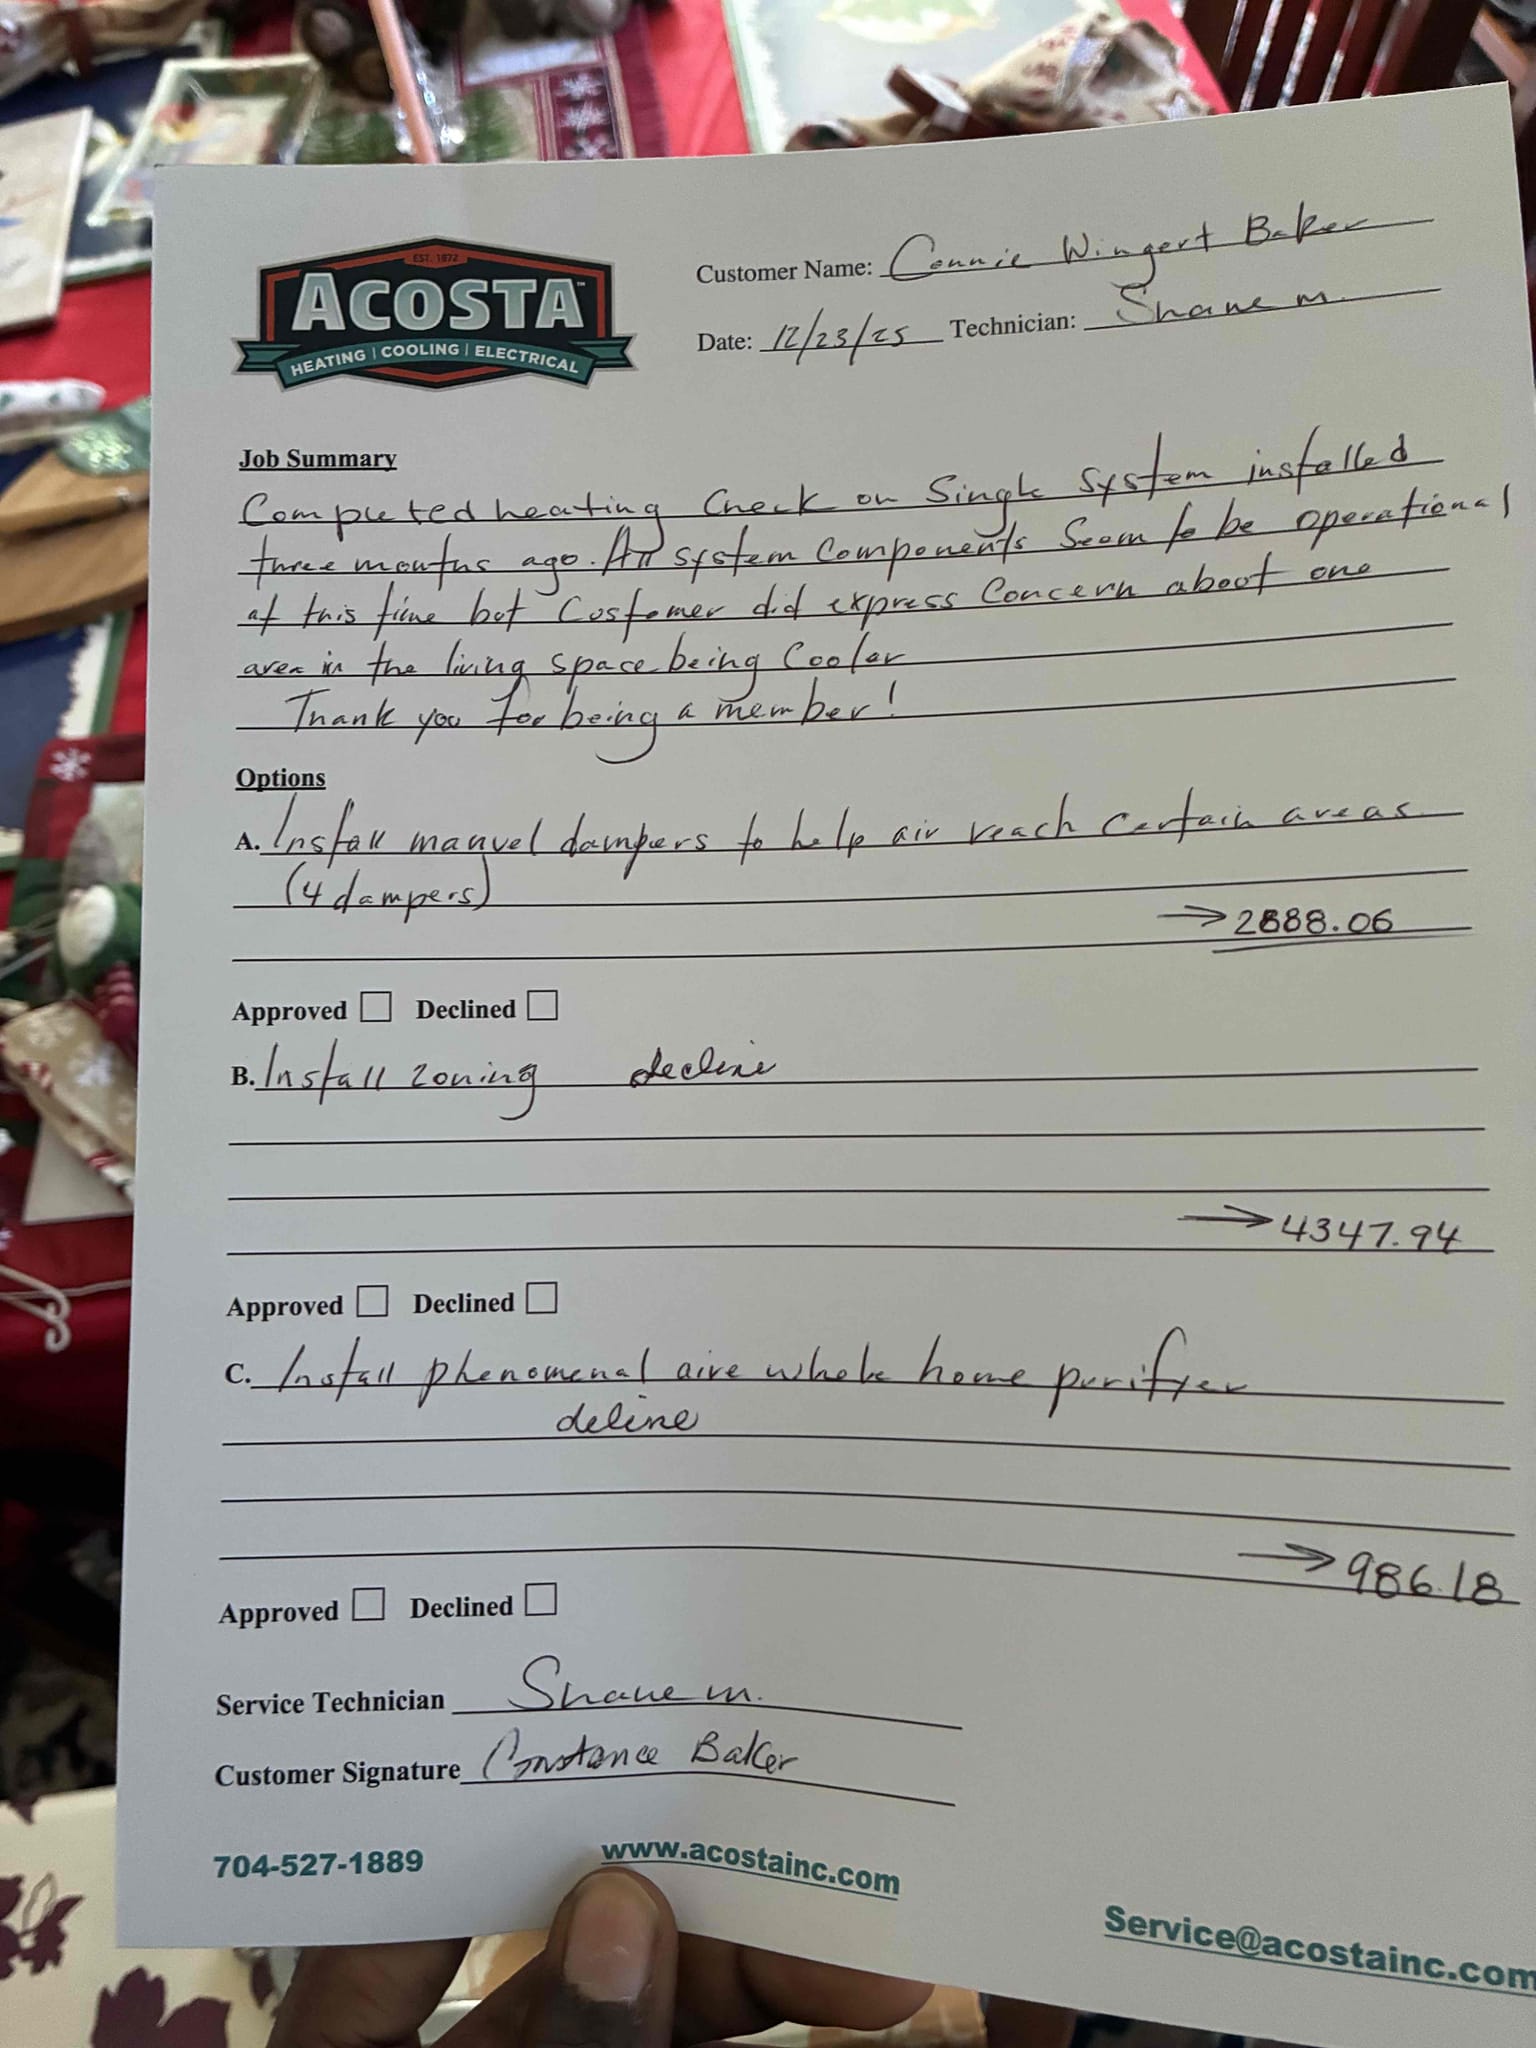 EST. 1872
ACOSTA™
HEATING | COOLING | ELECTRICAL
Customer Name: Connie Wingert Baker
Date: 12/23/25 Technician: Shane m.
Job Summary
Completed heating Check on Single System installed
three months ago. All system components Seem to be operational
at this time but Customer did express Concern about one
area in the living space being Cooler
Thank you for being a member!
Options
A. Install manuel dampers to help air reach certain areas
(4 dampers)
→ 2888.06
Approved ☐ Declined ☐
B. Install zoning decline
→ 4347.94
Approved ☐ Declined ☐
C. Install phenomenal aire whole home purifyer
deline
→ 986.18
Approved ☐ Declined ☐
Service Technician Shane m.
Customer Signature Constance Baker
704-527-1889
www.acostainc.com
Service@acostainc.com